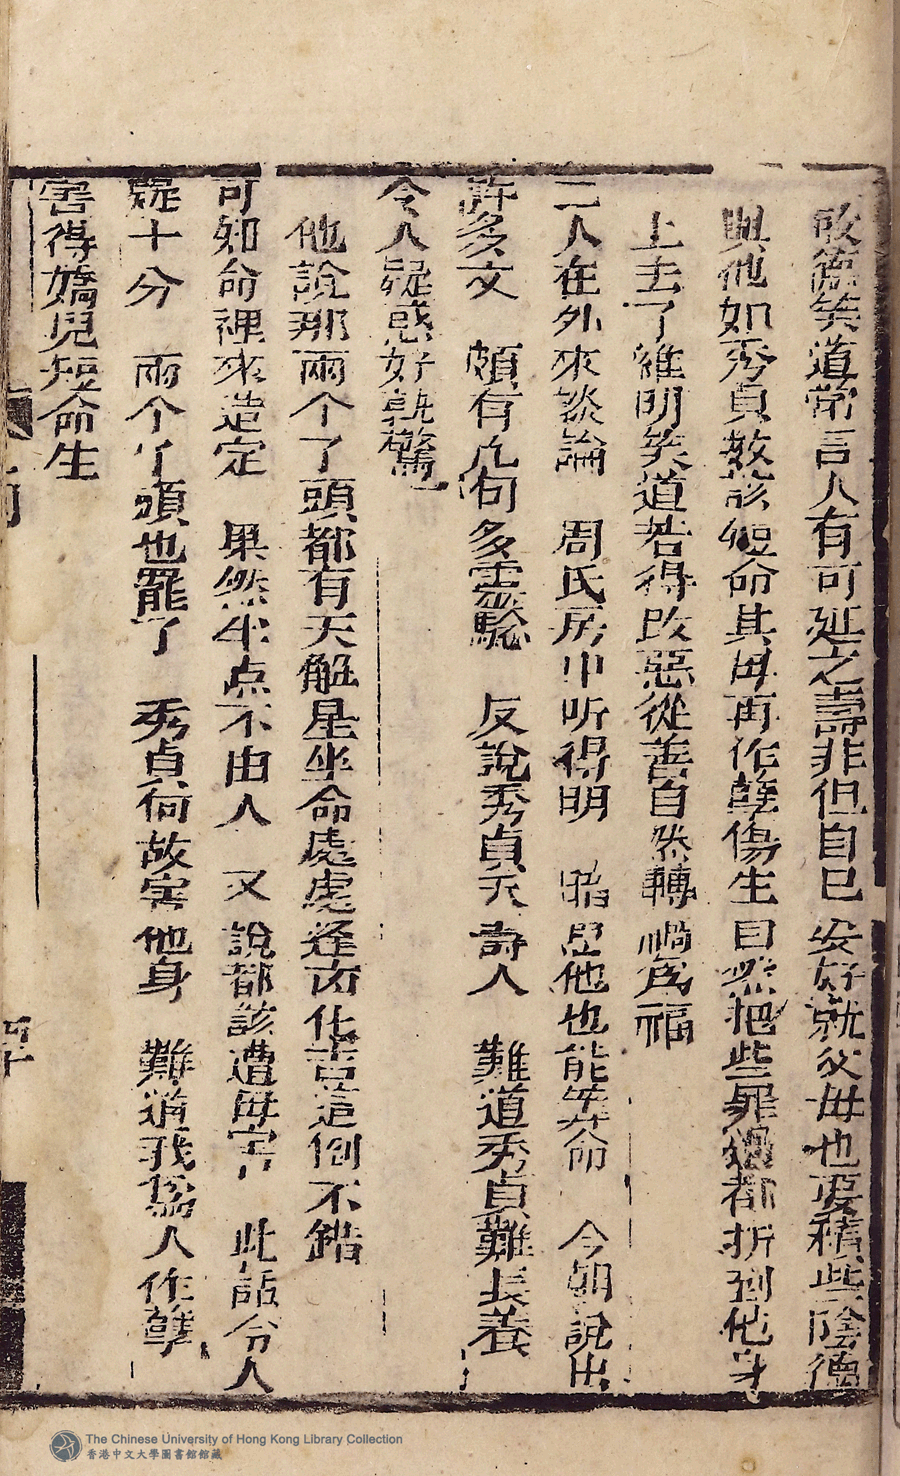 故德笑道常言人有可延之壽非但自已安好就父母也要積些陰德
與他如秀貞数該短命其母再作孽傷生目然把些罪過都折到他身
上去了維明笑道若得改惡從善自然轉禍爲福
二人在外來談論　周氏房中听得明　暗思他也能筭命　今朝說出
許多文　頗有几句多灵驗　反說秀貞夭壽人　難道秀貞難長養
令人疑惑好執驚
他說那兩个了頭都有天觧星坐命處處逢凶化吉這倒不錯
可知命裡來造定　果然半点不由人　又說都該遭毋害　此話令人
疑十分　兩个了頭也罷了　秀貞何故害他身　難道我爲人作孽
害得嬌兒短命生
四十
The Chinese University of Hong Kong Library Collection
香港中文大學圖書館館藏